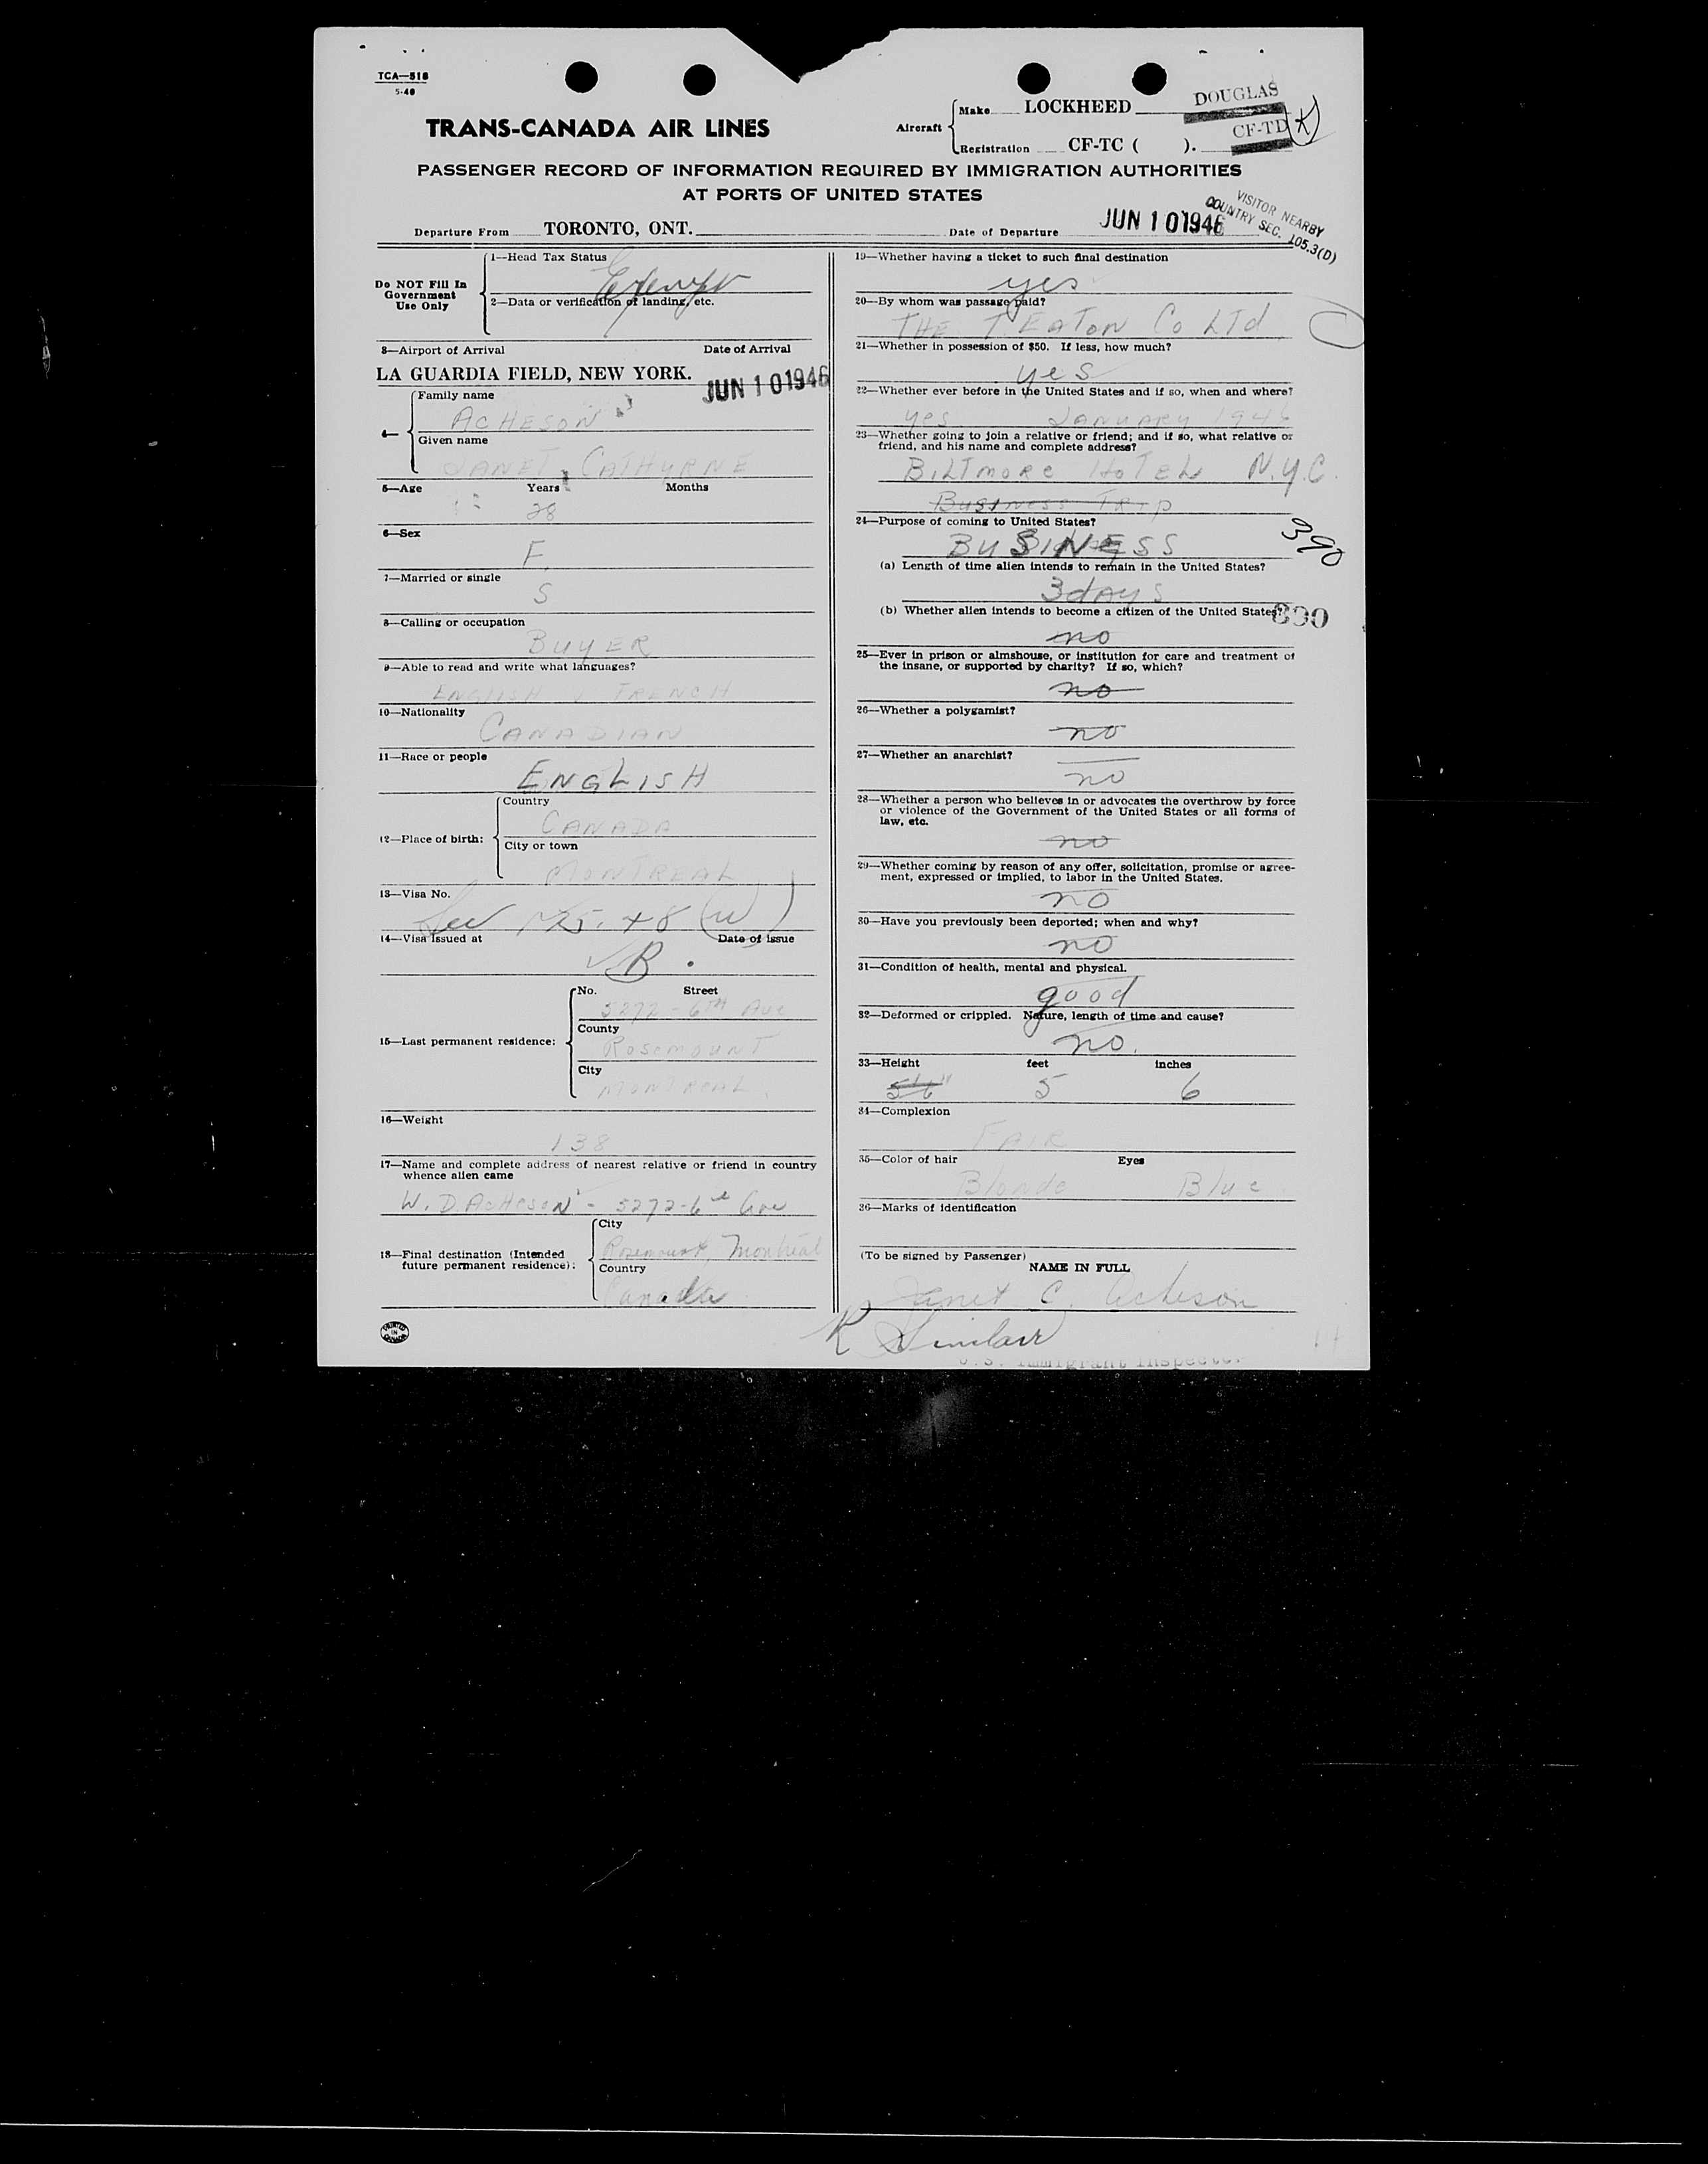 TCA—518
5-40
TRANS-CANADA AIR LINES
Aircraft
Make LOCKHEED
DOUGLAS
Registration CF-TC ( ).
CF-TD K
PASSENGER RECORD OF INFORMATION REQUIRED BY IMMIGRATION AUTHORITIES
AT PORTS OF UNITED STATES
VISITOR NEARBY
COUNTRY SEC. 105.3(D)
Departure From TORONTO, ONT. Date of Departure JUN 10 1946
Do NOT Fill In
Government
Use Only
1—Head Tax Status
Exempt
2—Data or verification of landing, etc.
3—Airport of Arrival Date of Arrival
LA GUARDIA FIELD, NEW YORK. JUN 10 1946
4—
Family name
ACHESON
Given name
JANET CATHYRNE
5—Age Years Months
28
6—Sex
F.
7—Married or single
S
8—Calling or occupation
BUYER
9—Able to read and write what languages?
ENGLISH FRENCH
10—Nationality
CANADIAN
11—Race or people
ENGLISH
12—Place of birth:
Country
CANADA
City or town
MONTREAL
13—Visa No.
14—Visa Issued at Date of issue
B
15—Last permanent residence:
No. Street
5272 - 6TH Ave
County
Rosemount
City
MONTREAL
16—Weight
138
17—Name and complete address of nearest relative or friend in country
whence alien came
W. D. Acheson - 5272-6 Ave
18—Final destination (Intended
future permanent residence):
City
Rosemount, Montreal
Country
Canada
PRINTED
IN
CANADA
19—Whether having a ticket to such final destination
yes
20—By whom was passage paid?
THE T. EATON Co LTd
21—Whether in possession of $50. If less, how much?
yes
22—Whether ever before in the United States and if so, when and where?
yes JANUARY 1946
23—Whether going to join a relative or friend; and if so, what relative or
friend, and his name and complete address?
BILTMORE HOTEL N.Y.C.
Business Trip
24—Purpose of coming to United States?
BUSINESS
390
(a) Length of time alien intends to remain in the United States?
3 days
(b) Whether alien intends to become a citizen of the United States?
no
25—Ever in prison or almshouse, or institution for care and treatment of
the insane, or supported by charity? If so, which?
no
26—Whether a polygamist?
no
27—Whether an anarchist?
no
28—Whether a person who believes in or advocates the overthrow by force
or violence of the Government of the United States or all forms of
law, etc.
no
29—Whether coming by reason of any offer, solicitation, promise or agree-
ment, expressed or implied, to labor in the United States.
no
30—Have you previously been deported; when and why?
no
31—Condition of health, mental and physical.
good
32—Deformed or crippled. Nature, length of time and cause?
no.
33—Height feet inches
5'6" 5 6
34—Complexion
FAIR
35—Color of hair Eyes
Blonde Blue
36—Marks of identification
(To be signed by Passenger)
NAME IN FULL
Janet C. Acheson
R Sinclair
U.S. Immigrant Inspector